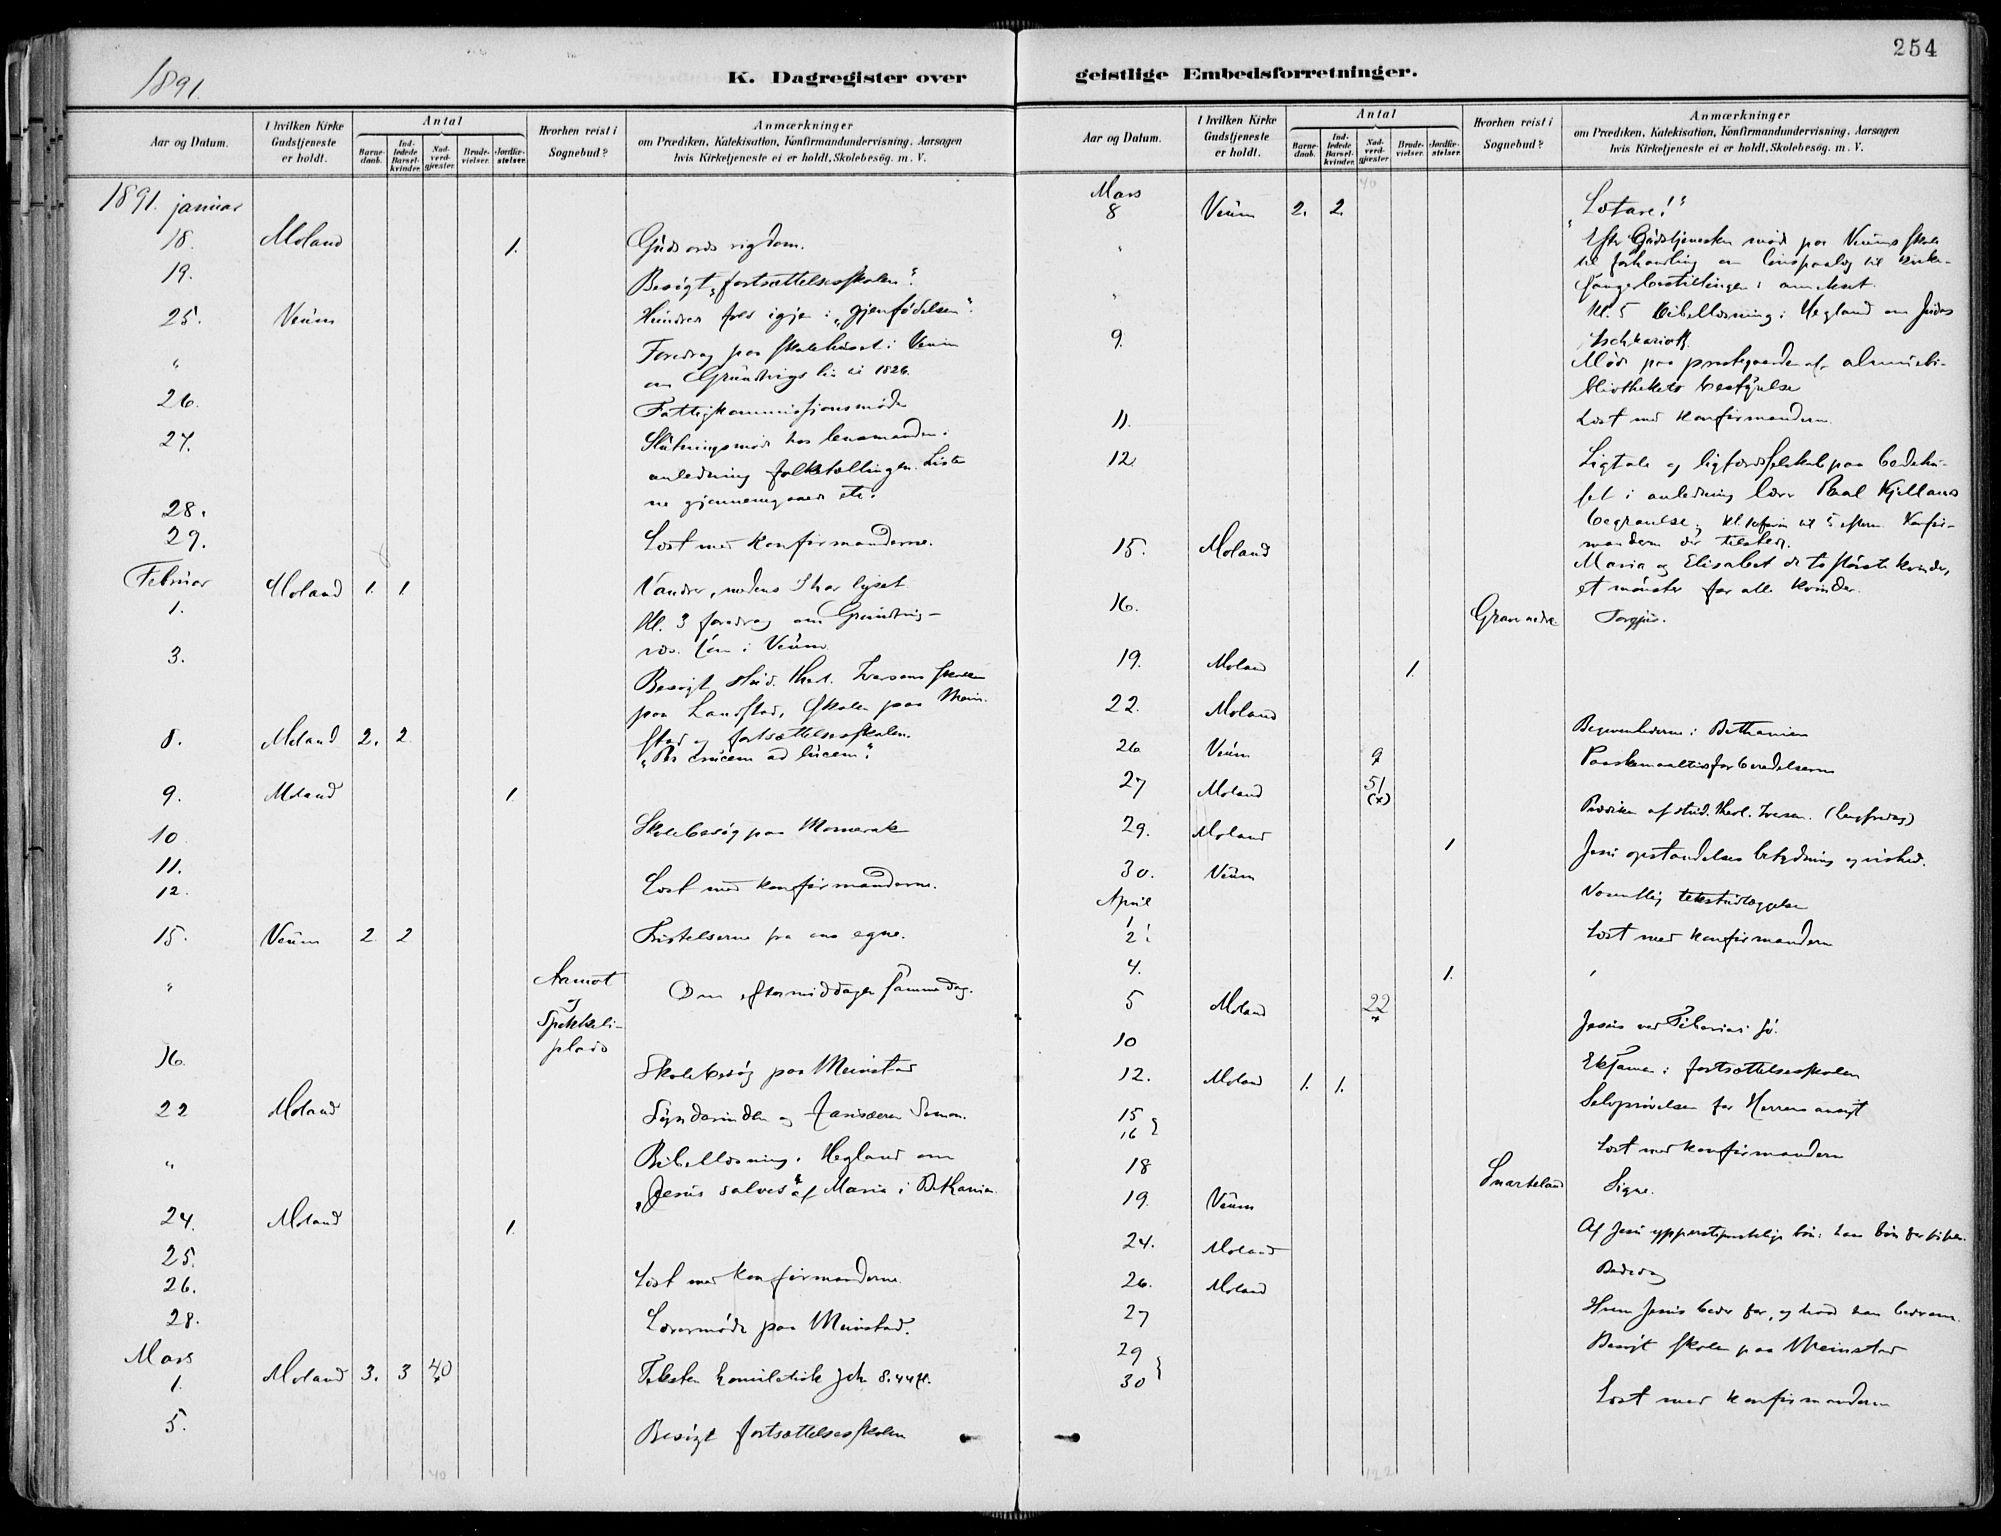 254
1891.
K. Dagregister over geistlige Embedsforretninger.
Aar og Datum. I hvilken Kirke Gudstjeneste er holdt. Antal Barnedaab. Indledede Barselkvinder. Nadverdgjester. Brudevielser. Jordfæstelser. Hvorhen reist i Sognebud? Anmærkninger om Prædiken, Katekisation, Konfirmandundervisning, Aarsagen hvis Kirketjeneste ei er holdt, Skolebesög. m. V.
1891. januar
18. Moland 1. Guds ords rigdom.
19. Besøgt "fortsættelsesskolen".
25. Veum igjen i "gjenfødelsen".
" Foredrag paa skolehuset i Veum
om Grundtvigs liv til 1826.
26. Fattigkommissjonsmøde
27. Slutningsmøde hos lensmanden i
anledning folketællingen. Liste
ne gjennemgaaes etc.
28.
29. Læst med konfirmanderne.
Februar
1. Moland 1. 1. Vandrer, medens I har lyset
Kl. 3 foredrag om Grundtvig
i Veum
3. Besøgt stud. theol. Iversens skole
paa Landstad, skolen paa Mein-
stad og fortsættelsesskolen.
8. Moland 2. 2. "Per crucem ad lucem".
9. Moland 1.
10 Skolebesøg paa Momrak
11.
12. Læst med konfirmanderne.
15. Veum 2 2 Fristelserne fra egne.
" Aamot
og
plads
Om eftermiddagen samme dag.
16. Skolebesøg paa Meinstad
22 Moland Synderinden og farisæeren Simon.
" Bibellæsning i Hegland om
"Jesus salves" af Maria i Bethania.
24. Moland 1.
25.
26. Læst med konfirmanderne.
28. Lærermøde paa Meinstad.
Mars
1. Moland 3. 3 40 Teksten homiletisk Joh 8.44 ff.
5. Besøgt fortsættelsesskolen
40
Aar og Datum. I hvilken Kirke Gudstjeneste er holdt. Antal Barnedaab. Indledede Barselkvinder. Nadverdgjester. Brudevielser. Jordfæstelser. Hvorhen reist i Sognebud? Anmærkninger om Prædiken, Katekisation, Konfirmandundervisning, Aarsagen hvis Kirketjeneste ei er holdt, Skolebesög. m. V.
40
Mars
8 Veum 2. 2. "Lætare!"
" Efter Gudstjenesten møde paa Veums skole
til forhandling om til kirke-
sangerbestillingen i annekset.
" Kl. 5 Bibellæsning i Hegland om Judas
Ischkarioth.
9. Møde paa prestegaarden af almuebi-
bliothekets bestyrelse
11. Læst med konfirmanderne
12. Ligtale og ligfærdsselskab paa bedehu-
set i anledning lærer Paal Kjellands
begravelse; Kl. til 5 efterm. Konfir-
manderne der tilstede.
15. Moland Maria og Elisabet de to største kvinder,
et mønster for alle kvinder.
16. Torgjus.
19. Moland 1.
22. Moland Begivenhederne i Bethanien
26 Veum 9 Paaskemaaltidsforberedelserne
27 Moland 51
(x) Prædiken af stud. theol. Iversen. (Langfredag)
29. Moland 1 Jesu opstandelses betydning og vished.
30. Veum Væsentlig tekstudlæggelse
April
1
2. Læst med konfirmanderne
4. 1.
5 Moland 22 Jesus ved Tiberias sø.
10 Eksamen i fortsættelsesskolen
12. Moland 1. 1. Selvprøvelsen for Herrens ansigt
15
16 Læst med konfirmanderne
18 Snarteland Signe.
19. Veum Af Jesu ypperstepræstelige bøn:
24. Moland Bededag
26. Moland Hvem Jesus beder for, og hvad han beder om.
27 Besøgt skolen paa Meinstad
29
30 Læst med konfirmanderne
122